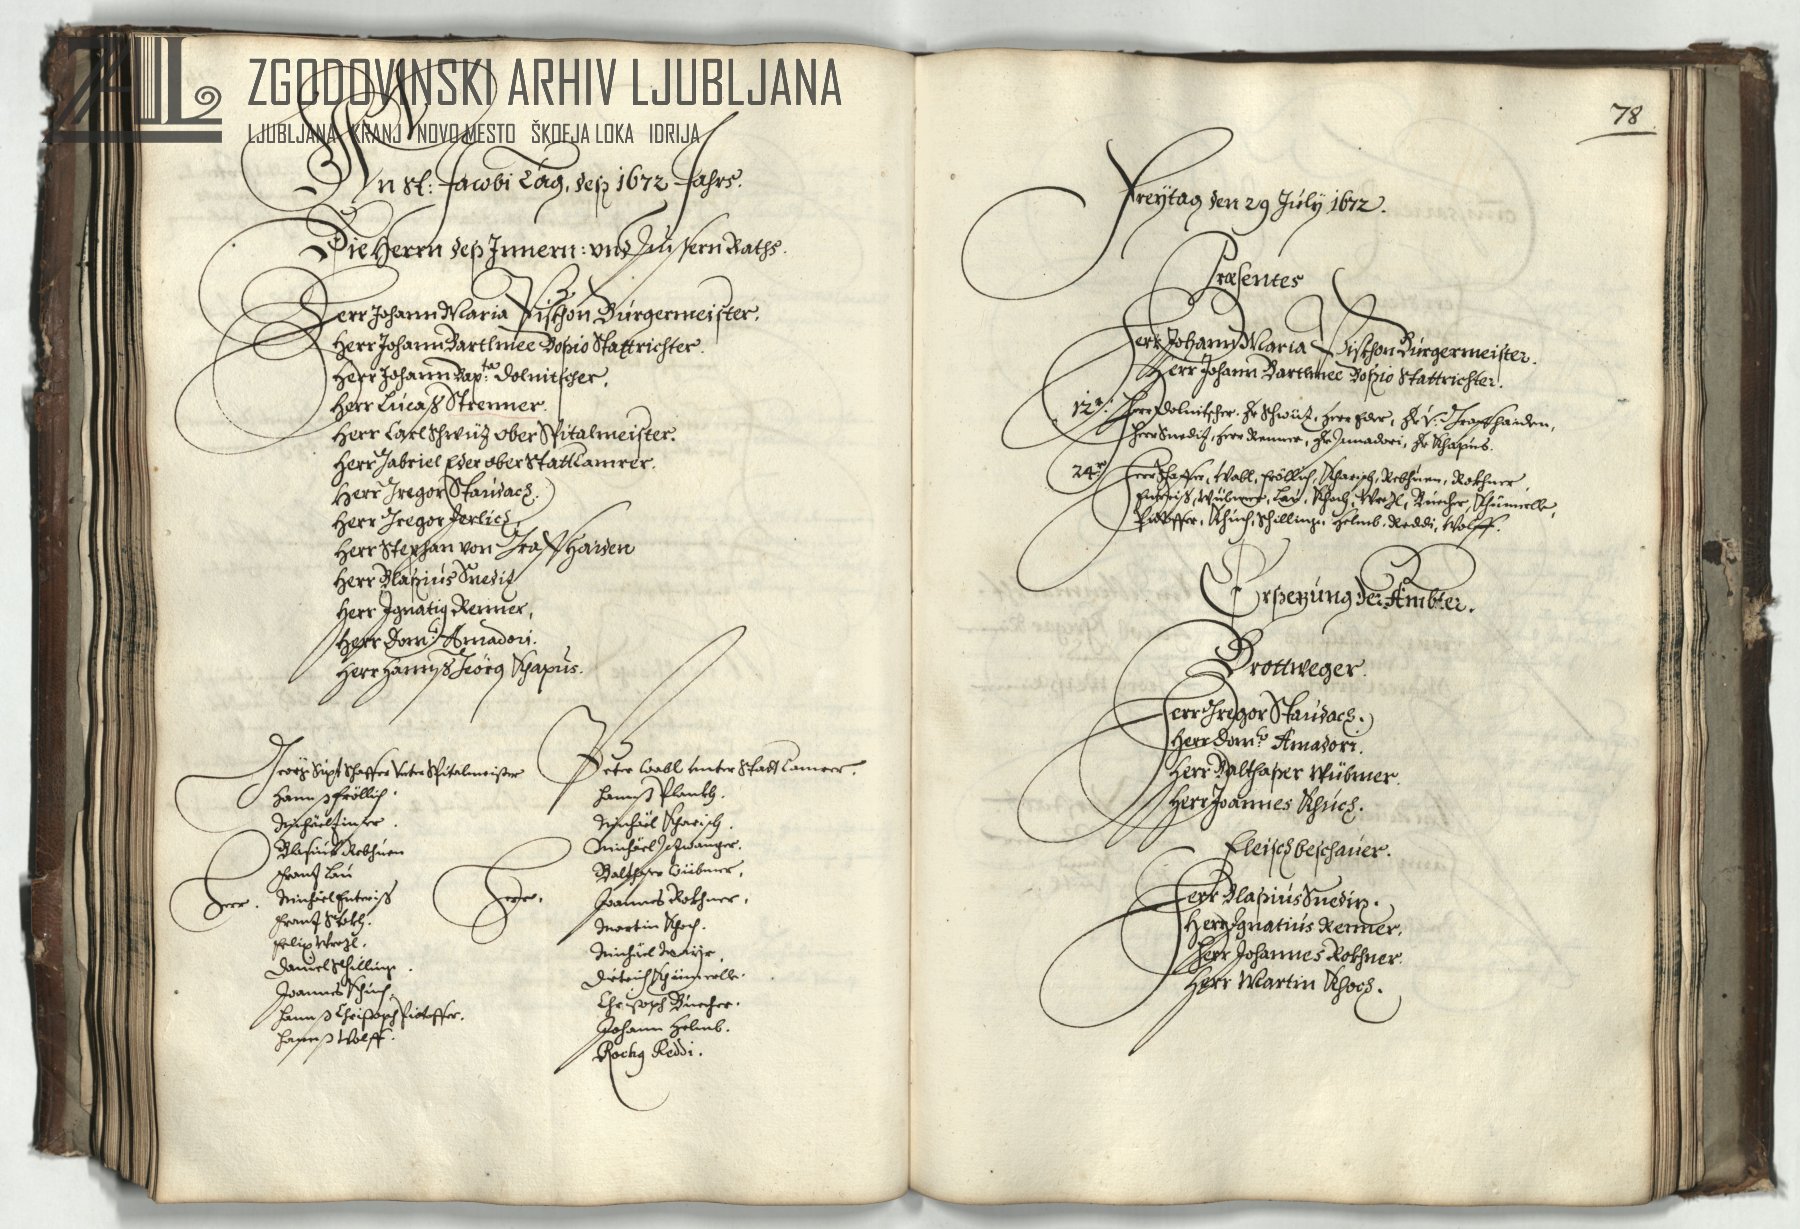 ZGODOVINSKI ARHIV LJUBLJANA
LJUBLJANA KRANJ NOVO MESTO ŠKOFJA LOKA IDRIJA
An St: Jacobi Tag, deß 1672 Jahrs.
Die Herrn deß Innern: vnd Eüssern Raths.
Herr Johann Maria Vischon Bürgermeister.
Herr Johann Bartlmee Boßio Stattrichter.
Herr Johann Bap:ta Dolnitscher.
Herr Lucaß Strenner.
Herr Carl Schwüz ober Spitalmeister.
Herr Gabriel Eder ober Statt Camrer.
Herr Gregor Staudach.
Herr Gregor Zerlich.
Herr Stephan von Graffhaiden
Herr Blaßius Snediz
Herr Ignatig Renner.
Herr Dom:co Amadori.
Herr Hannß Geörg Schapus.
Geörg Sixt Schaffer Vnter Spitalmeister
Hannß Fröllich.
Michäel
Blasius Rebhüen
Franz Lau
Herr. Michäel Enterniß
Franz Stökh.
Felix Wrezl.
Daniel Schilling.
Joannes Schüch.
Hannß Christoph Pücloffer.
Hannß Wolff.
Peter Wabl vnter Statt Camrer.
Hannß Plankh.
Michäel Scharisch.
Michäel
Balthaser Wübmer.
Herr. Joannes Rokhner.
Martin Schoch.
Michäel Mayr.
Dietrich
Christoph Buecher.
Johann Helmb.
Rochg Reddi.
78
Freytag den 29 July 1672.
Præsentes
Herr Johann Maria Vischon Bürgermeister.
Herr Johann Bartlmee Boßio Stattrichter.
12.er: Herr Dolnitscher. Hr Schwüz, Herr Eder, Hr V: Graffhaiden,
Herr Snediz, Herr Renner, Hr Amadori, Hr Schapus.
24.er Herr Schaffer, Wabl, Fröllich, Scharisch, Rebhüen, Rokhner,
Enterniß, Wübmer, Lau, Schoch, Wrezl, Buecher,
Pücloffer, Schüch, Schilling, Helmb, Reddi, Wolff.
Erßezung der Ämbter.
Brottweger.
Herr Gregor Staudach.
Herr Dom:co Amadori.
Herr Balthaßer Wübmer.
Herr Joannes Schüch.
Fleischbeschauer.
Herr Blaßius Snediz.
Herr Ignatius Renner.
Herr Johannes Rokhner.
Herr Martin Schoch.